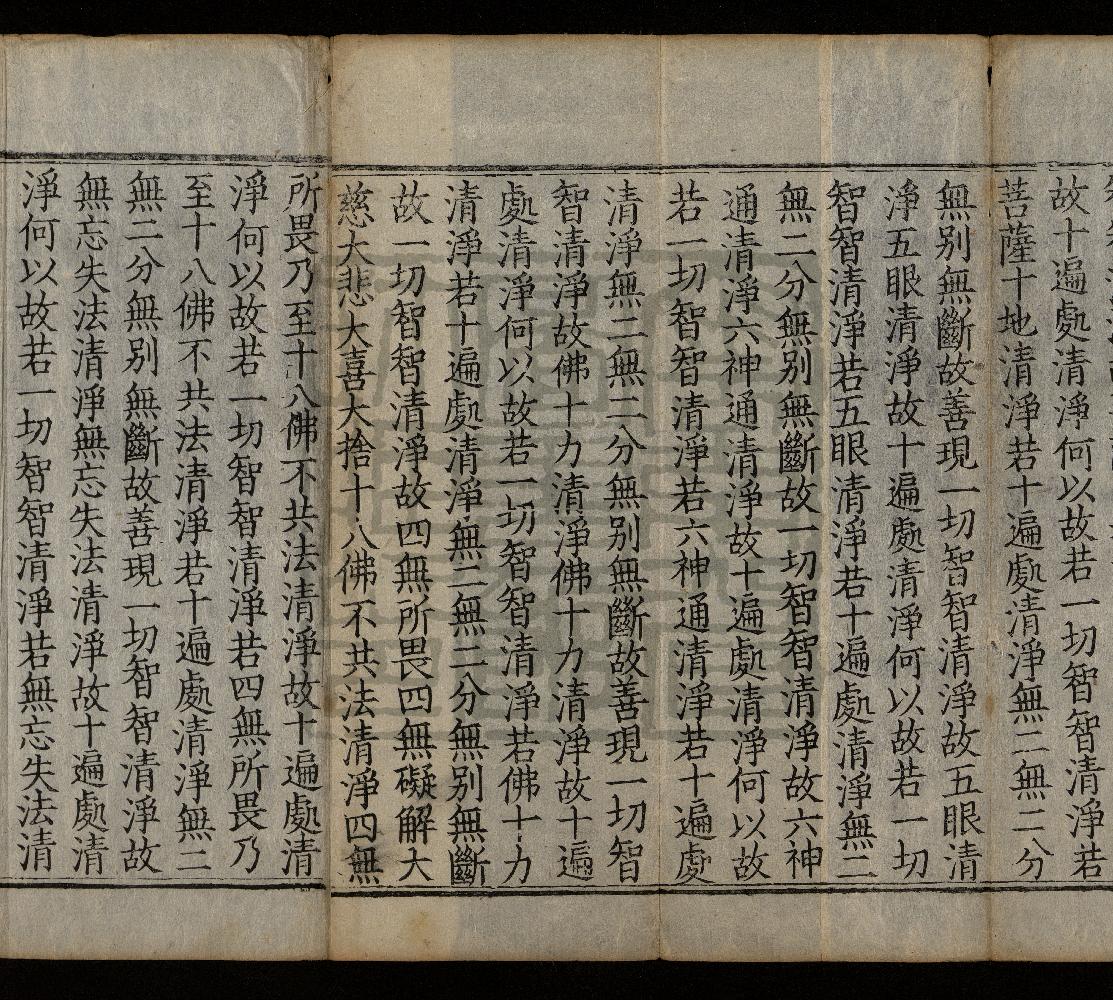 故十遍處清淨何以故若一切智智清淨若
菩薩十地清淨若十遍處清淨無二無二分
無別無斷故善現一切智智清淨故五眼清
淨五眼清淨故十遍處清淨何以故若一切
智智清淨若五眼清淨若十遍處清淨無二
無二分無別無斷故一切智智清淨故六神
通清淨六神通清淨故十遍處清淨何以故
若一切智智清淨若六神通清淨若十遍處
清淨無二無二分無別無斷故善現一切智
智清淨故佛十力清淨佛十力清淨故十遍
處清淨何以故若一切智智清淨若佛十力
清淨若十遍處清淨無二無二分無別無斷
故一切智智清淨故四無所畏四無礙解大
慈大悲大喜大捨十八佛不共法清淨四無
所畏乃至十八佛不共法清淨故十遍處清
淨何以故若一切智智清淨若四無所畏乃
至十八佛不共法清淨若十遍處清淨無二
無二分無別無斷故善現一切智智清淨故
無忘失法清淨無忘失法清淨故十遍處清
淨何以故若一切智智清淨若無忘失法清